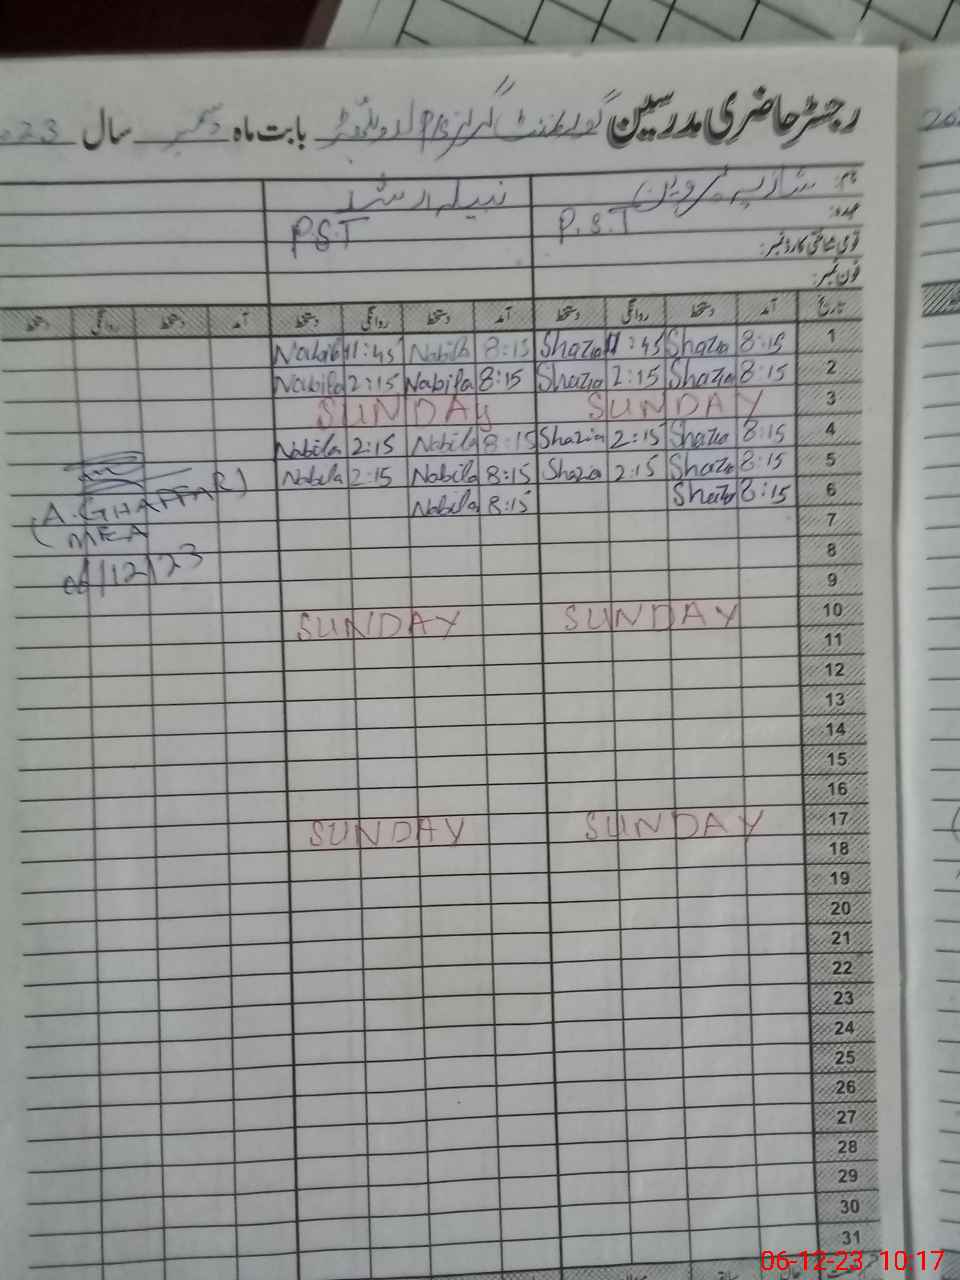 رجسٹر حاضری مدرسین گورنمنٹ گرلز بابت ماہ دسمبر سال 023
نام: شازیہ پروین نبیلہ ارشد
عہدہ: P.S.T P.S.T
قومی شناختی کارڈ نمبر:
فون نمبر:
تاریخ آمد دستخط روانگی دستخط آمد دستخط روانگی دستخط آمد دستخط روانگی دستخط
1 8:15 Shazia 11:45 Shazia 8:15 Nabila 11:45 Nabila
2 8:15 Shazia 2:15 Shazia 8:15 Nabila 2:15 Nabila
3 SUNDAY SUNDAY
4 8:15 Shazia 2:15 Shazia 8:15 Nabila 2:15 Nabila
5 8:15 Shazia 2:15 Shazia 8:15 Nabila 2:15 Nabila
6 8:15 Shazia 8:15 Nabila
(A.GHAFFAR)
MEA
06/12/23
7
8
9
10 SUNDAY SUNDAY
11
12
13
14
15
16
17 SUNDAY SUNDAY
18
19
20
21
22
23
24
25
26
27
28
29
30
31
06-12-23 10:17